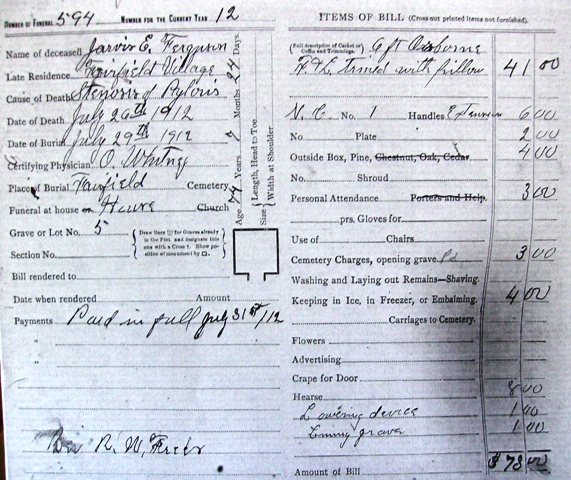 NUMBER OF FUNERAL 594 NUMBER FOR THE CURRENT YEAR 12
Name of deceased Jarvis E. Ferguson
Late Residence Fairfield Village
Cause of Death Stenosis of Pyloris
Date of Death July 26th 1912
Date of Burial July 29th 1912
Certifying Physician O. Whitney
Place of Burial Fairfield Cemetery
Funeral at house or House Church
Grave or Lot No. 5
Section No.
Draw lines for Graves already in the Plot and designate this one with a Cross †. Show position of monument by □.
Bill rendered to
Date when rendered Amount
Payments Paid in full July 31st/12
"
"
R. W. Freer
Age 74 Years, Months 24 Days.
Size Length, Head to Toe
Width at Shoulder
ITEMS OF BILL (Cross out printed items not furnished).
(Full description of Casket or Coffin and Trimmings.) 6 ft Osborne
trimed with pillow 41 00
V. C. No. 1 Handles Extension 6 00
No. Plate 2 00
Outside Box, Pine, Chestnut, Oak, Cedar 4 00
No. Shroud
Personal Attendance Porters and Help. 3 00
prs. Gloves for
Use of Chairs
Cemetery Charges, opening grave Pd 3 00
Washing and Laying out Remains—Shaving.
Keeping in Ice, in Freezer, or Embalming. 4 00
Carriages to Cemetery.
Flowers
Advertising
Crape for Door
Hearse 8 00
Lowering device 1 00
grave 1 00
Amount of Bill $ 73 00